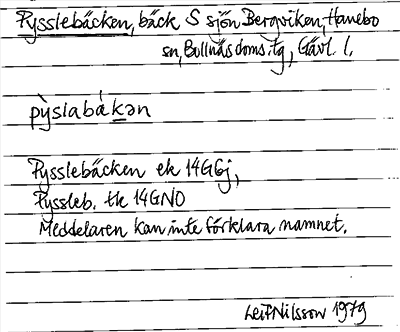 Pysslebäcken, bäck S sjön Bergviken, Hanebo
sn, Bollnäs doms. tg, Gävl. l.
pỳslabákən
Pysslebäcken ek 14G6j,
Pyssleb. tk 14GNO
Meddelaren kan inte förklara namnet.
Leif Nilsson 1979